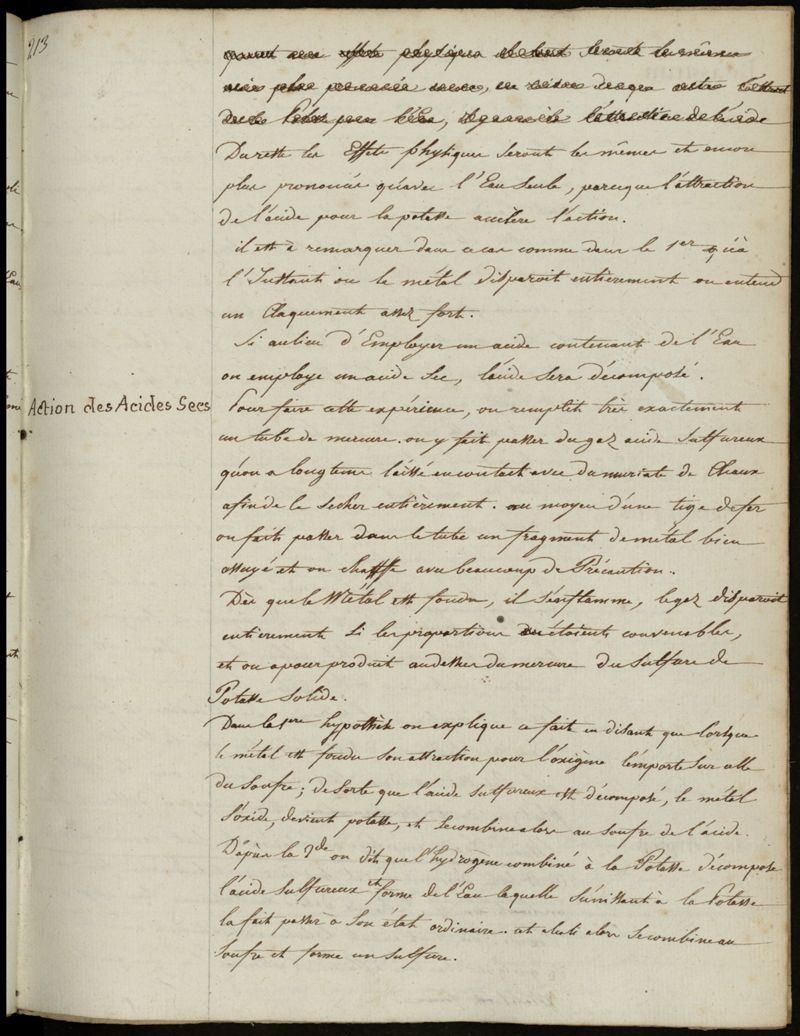 213
Du reste les Effets physiques seront les mêmes et encore
plus prononcés qu'avec l'Eau seule, parceque l'attraction
de l'acide pour la potasse accélère l'action.
il est à remarquer dans ce cas comme dans le 1er qu'à
l'Instant ou le métal disparoit entierement on entend
un Claquement assez fort.
Si au lieu d'Employer un acide contenant de l'Eau
on employe un acide sec, l'acide sera décomposé.
Action des Acides Secs
Pour faire cette expérience, on remplit très exactement
un tube de mercure. on y fait passer du gaz acide sulfureux
qu'on a longtems laissé en contact avec du muriate de Chaux
afin de le secher entièrement. au moyen d'une tige de fer
on fait passer dans le tube un fragment de métal bien
essuyé et on chauffe avec beaucoup de Précaution.
Dès que le Métal est fondu, il s'enflamme, le gaz disparoit
entierement si les proportions étoient convenables,
et on a pour produit au dessus du mercure du sulfure de
Potasse solide.
Dans la 1ere hypothèse on explique ce fait en disant que lorsque
le métal est fondu son attraction pour l'oxigène l'emporte sur celle
du soufre; de sorte que l'acide sulfureux est décomposé, le métal
s'oxide, devient potasse, et se combine alors au soufre de l'acide.
D'après la 2de on dit que l'hydrogène combiné à la Potasse décompose
l'acide sulfureux et forme de l'Eau laquelle s'unissant à la Potasse
la fait passer à son état ordinaire. et celle ci alors se combine au
soufre et forme un sulfure.